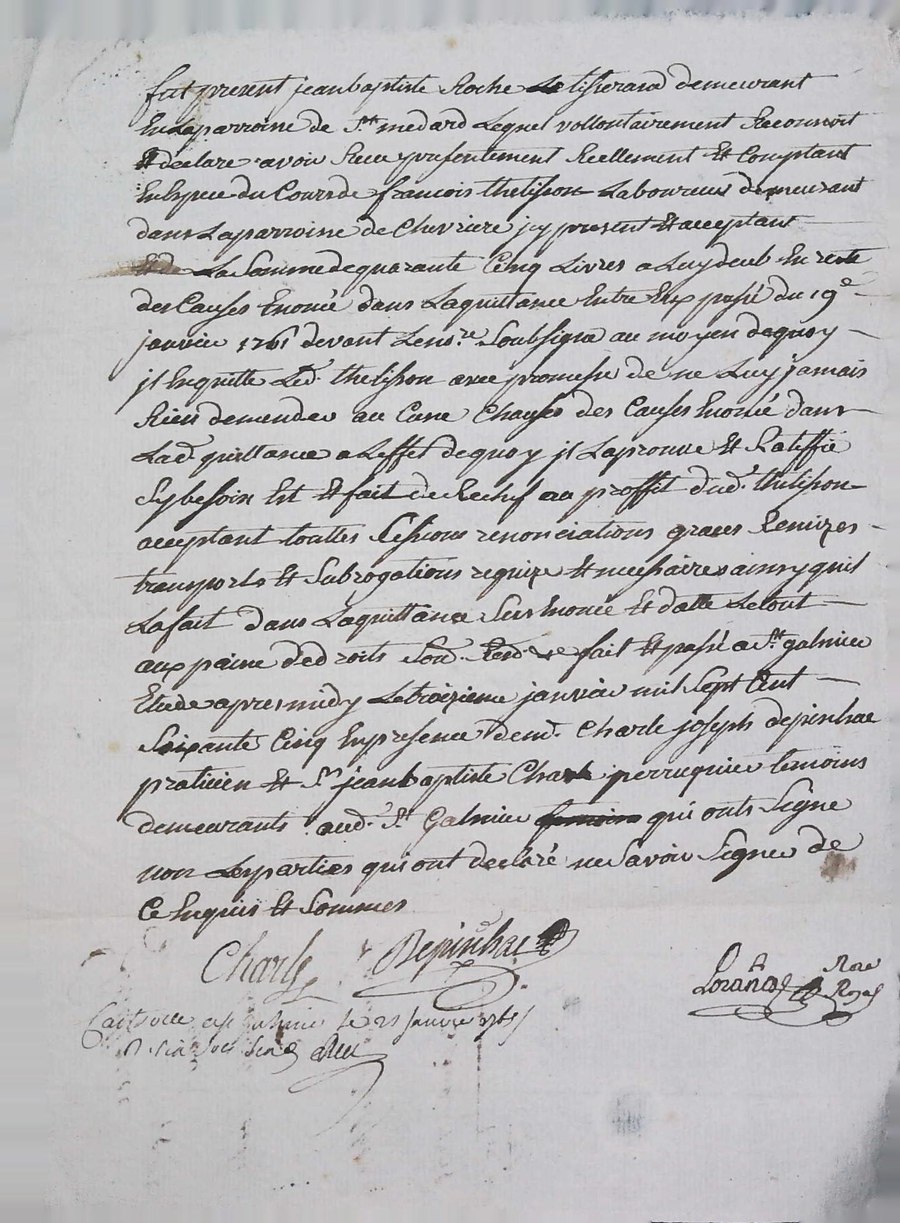 fut present jean baptiste Roche Le tisserand demeurant
En Laparroisse de St. medard Lequel vollontairement Reconnoit
Et declare avoir Receu presentement Reellement Et Comptant
En Espece du Cours de francois thelisson Laboureur demeurant
dans Laparroisse de Chevriere jcy present Et acceptant
La Somme de quarante Cinq Livres a Luy deub En reste
des Causes Enoncé dans Laquittance Entre Eux passé du 19e
janvier 1761 devant Le nore. Soubsigné au moyen dequoy
jl Enquitte Led. thelisson avec promesse de ne Luy jamais
Rien demender au Cune Chauses des Causes Enoncé dans
Lad. quittance a Leffet dequoy jl Laprouve Et Ratiffie
Sy besoin Est Et fait de Rechef au proffit dud. thelisson
acceptant touttes Cessions renonciations graces Remizes
transports Et Subrogations requize Et necessaires ainsy quil
La fait dans Laquittance Sus Enoncée Et datte Le tout
aux paine de droits Sou. Rend. fait Et passé a St. galmier
Etude apres midy Le troizieme janvier mil Sept Cent
Soixante Cinq En presence de me. Charle joseph depinhac
praticien Et Sr. jean baptiste Charle perruquier temoins
demeurants aud. St. Galmier qui onts Signé
non Les parties qui ont declaré ne Savoir Signer de
Ce Enquis Et Sommés
Charle Depinhac
Not
Royal
Controllé a St galmier Le 21 janvier 1765
R six sols six d